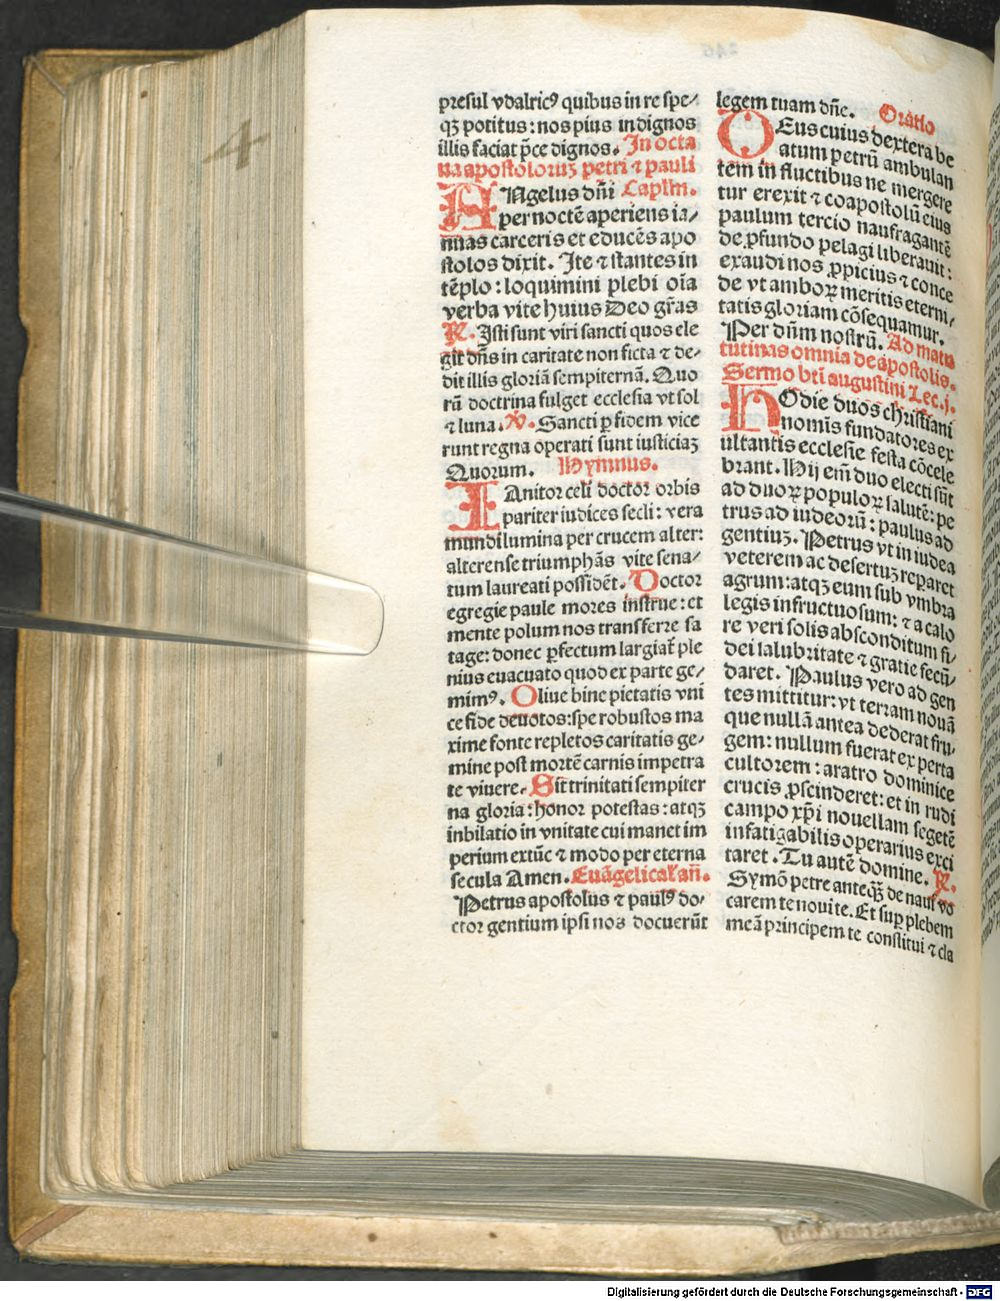 4
presul vdalricꝰ quibus in re spe⸗
qꝫ potitus: nos pius indignos
illis faciat p̄ce dignos. In octa
ua apostoloruꝫ petri ⁊ pauli
ANgelus dn̄i Caplm̄.
per noctē aperiens ia⸗
nuas carceris et educēs apo
stolos dixit. Ite ⁊ stantes in
tēplo: loquimini plebi oīa
verba vite huius Deo gr̄as
R̷. Isti sunt viri sancti quos ele
git dn̄s in caritate non ficta ⁊ de⸗
dit illis gloriā sempiternā. Quo
rū doctrina fulget ecclesia vt sol
⁊ luna. V̷. Sancti ꝑ fidem vice
runt regna operati sunt iusticiaꝫ
Quorum. Hymnus.
IAnitor celi doctor orbis
pariter iudices secli: vera
mundi lumina per crucem alter:
alter ense triumphās vite sena⸗
tum laureati possidēt. Doctor
egregie paule mores instrue: et
mente polum nos transferre sa
tage: donec ꝑfectum largiat᷑ ple
nius euacuato quod ex parte ge⸗
rimꝰ. Oliue bine pietatis vni
ce fide deuotos: spe robustos ma
xime fonte repletos caritatis ge⸗
mine post mortē carnis impetra
te viuere. Sit trinitati sempiter
na gloria: honor potestas: atqꝫ
iubilatio in vnitate cui manet im
perium extūc ⁊ modo per eterna
secula Amen. Euāgelicaƚ an̄.
Petrus apostolus ⁊ paulꝰ do⸗
ctor gentium ipsi nos docuerūt
legem tuam dn̄e. Oratio
DEus cuius dextera be
atum petrū ambulan
tem in fluctibus ne mergere
tur erexit ⁊ coapostolū eius
paulum tercio naufragantē
de ꝓfundo pelagi liberauit:
exaudi nos ꝓpicius ⁊ conce
de vt amboꝝ meritis eterni⸗
tatis gloriam cōsequamur.
Per dn̄m nostrū. Ad matu
tutinas omnia de apostolis.
Sermo bt̄i augustini Lec.j.
HOdie duos christiani
nominis fundatores ex
ultantis ecclesie festa cōcele
brant. Hij em̄ duo electi sūt
ad duoꝝ populoꝝ salutē: pe
trus ad iudeorū: paulus ad
gentiuꝫ. Petrus vt in iudea
veterem ac desertuꝫ repararet
agrum: atqꝫ eum sub vmbra
legis infructuosum: ⁊ a calo
re veri solis absconditum fi⸗
dei salubritate ⁊ gratie fecū⸗
daret. Paulus vero ad gen
tes mittitur: vt terram nouā
que nullā antea dederat fru⸗
gem: nullum fuerat experta
cultorem: aratro dominice
crucis ꝓscinderet: et in rudi
campo xp̄i nouellam segetē
infatigabilis operarius exci
taret. Tu autē domine. R̷.
Symō petre anteqꝙ̄ de naui vo
carem te noui te. Et suꝑ plebem
meā principem te constitui ⁊ cla
Digitalisierung gefördert durch die Deutsche Forschungsgemeinschaft - DFG